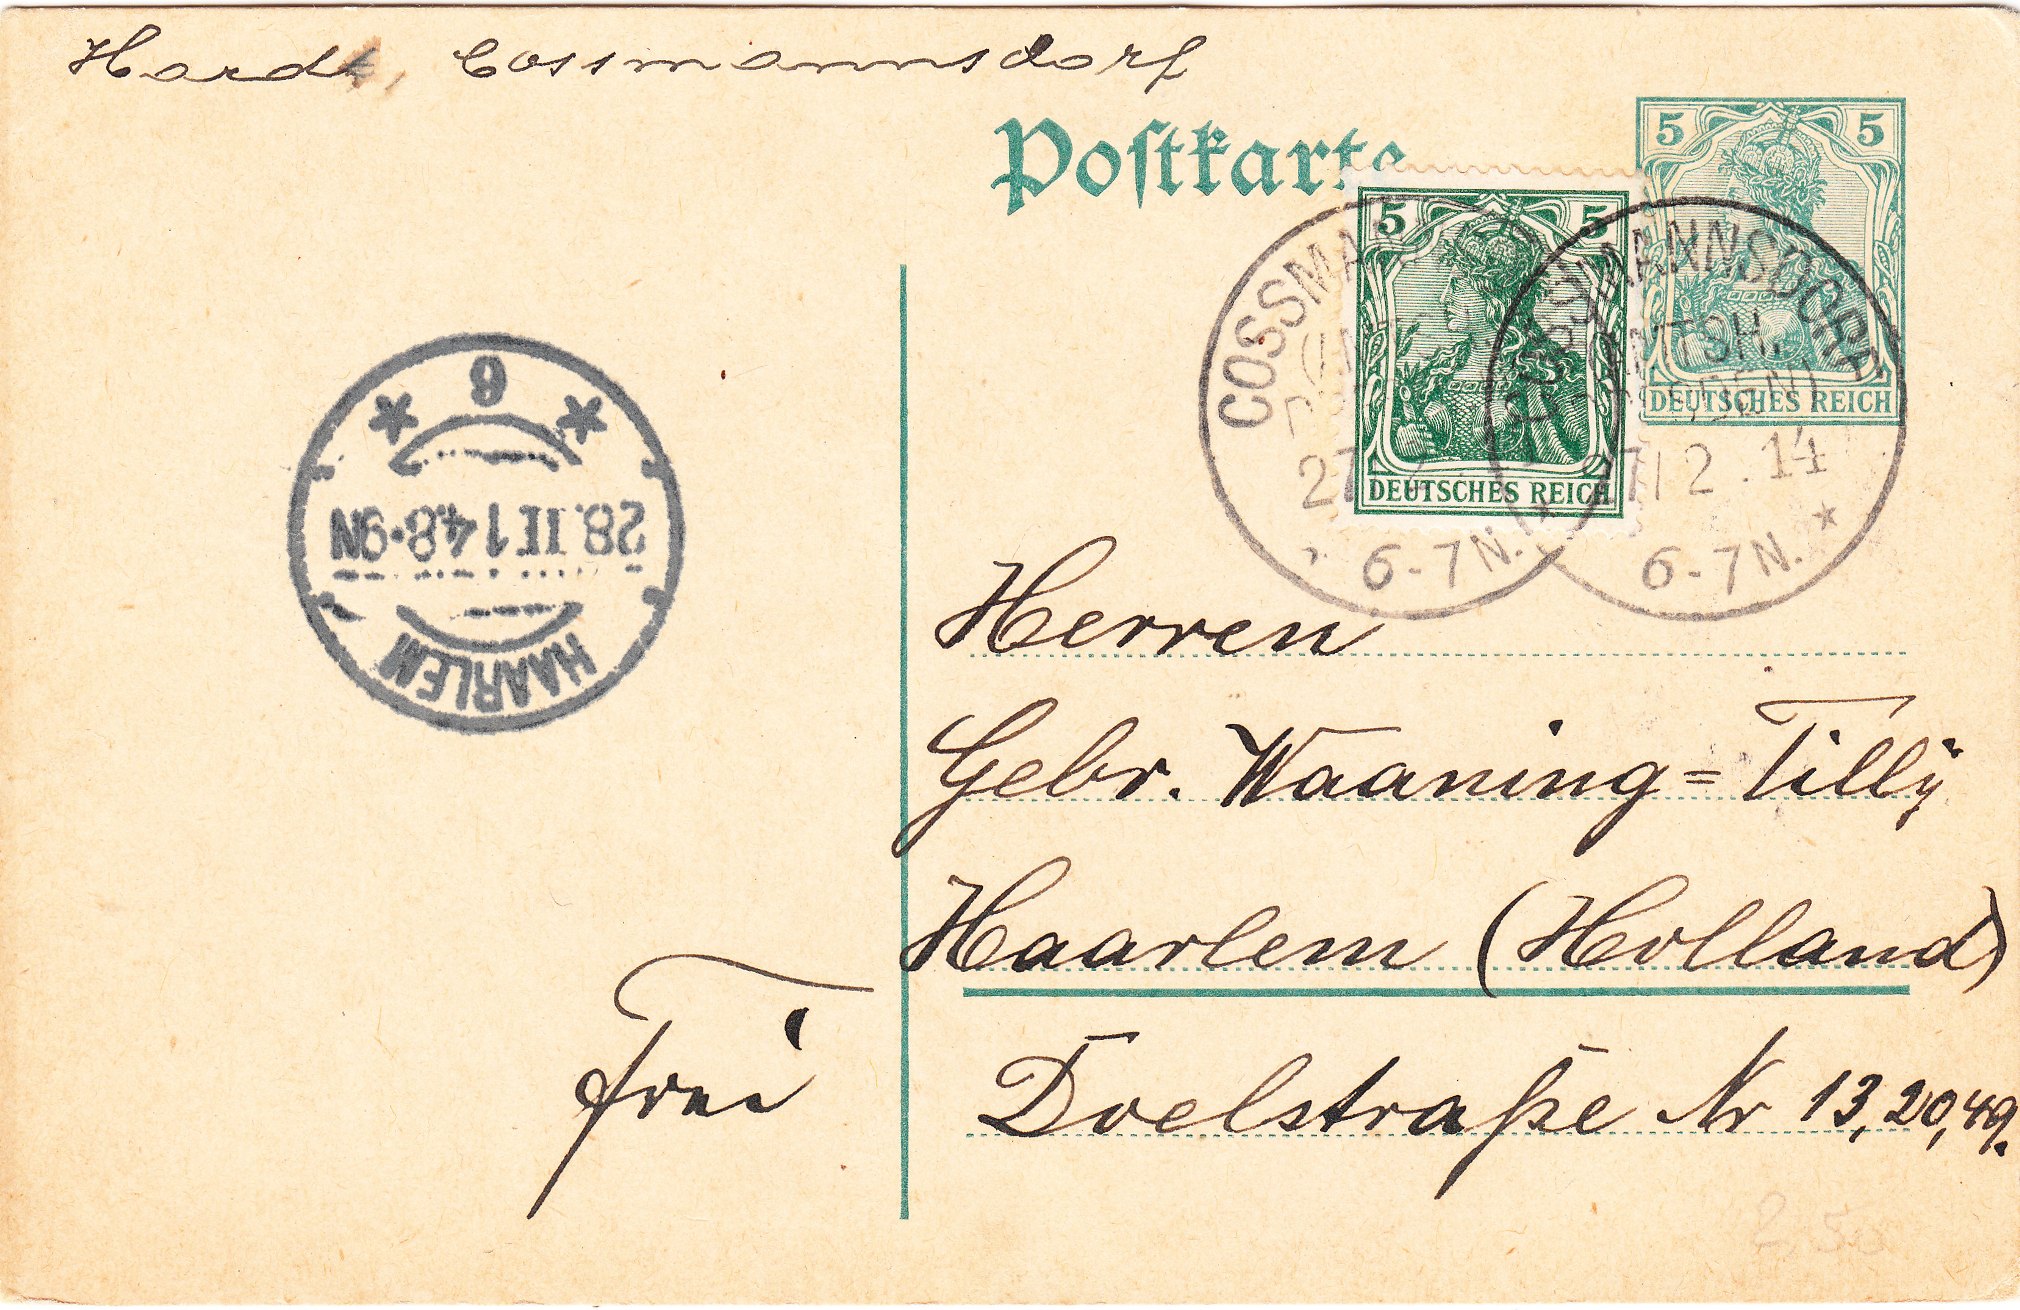 Hardt, Cossmannsdorf
Postkarte
5 5
DEUTSCHES REICH
5 5
DEUTSCHES REICH
COSSMA
27
6-7N.
MANNSDORF
AMTSH.
27/2.14
6-7N. *
* 6 *
28.II14.8-9N
HAARLEM
Herren
Gebr. Waaning=Tilly
Haarlem (Holland)
Doelstraße Nr 13, 20, 49.
Frei